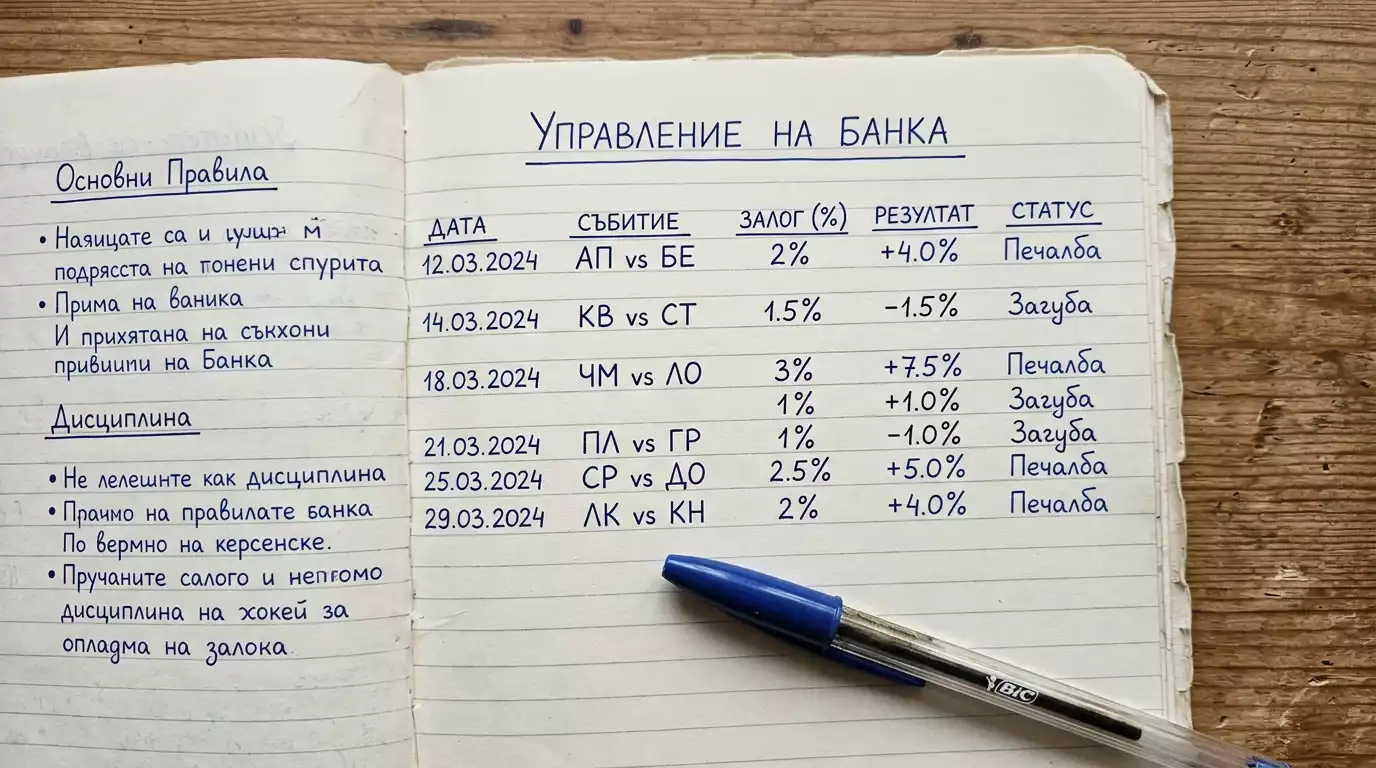 Основни Правила
• Наяицате са и
подрясста на понени спурита
• Прима на ваника
И прихятана на съкхони
привиипи на Банка
Дисциплина
• Не лелешнте как дисциплина
• Праимо на правилате банка
По вермно на керсенске.
• Пручаните салого и непгомо
дисциплина на хокей за
опладма на залока.
УПРАВЛЕНИЕ НА БАНКА
ДАТА СЪБИТИЕ ЗАЛОГ (%) РЕЗУЛТАТ СТАТУС
12.03.2024 АП vs БЕ 2% +4.0% Печалба
14.03.2024 КВ vs СТ 1.5% −1.5% Загуба
18.03.2024 ЧМ vs ЛО 3% +7.5% Печалба
1% +1.0% Загуба
21.03.2024 ПЛ vs ГР 1% −1.0% Загуба
25.03.2024 СР vs ДО 2.5% +5.0% Печалба
29.03.2024 ЛК vs КН 2% +4.0% Печалба
BIC